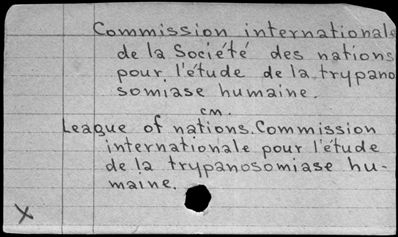 Commission internationale
de la Société des nations
pour l'étude de la trypano
somiase humaine.
cm.
League of nations. Commission
internationale pour l'étude
de la trypanosomiase hu-
maine.
X